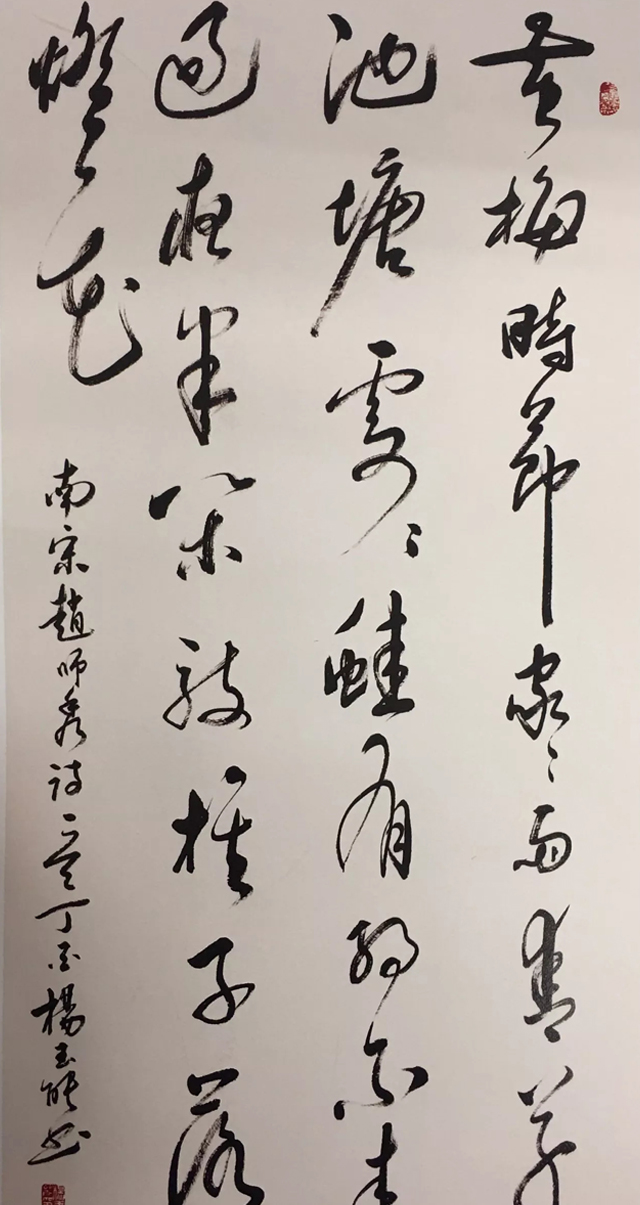 黄梅時節家〻雨青草
池塘處〻蛙有約不來
過夜半閑敲棋子落
燈花
南宋趙師秀詩一首丁酉楊玉能書